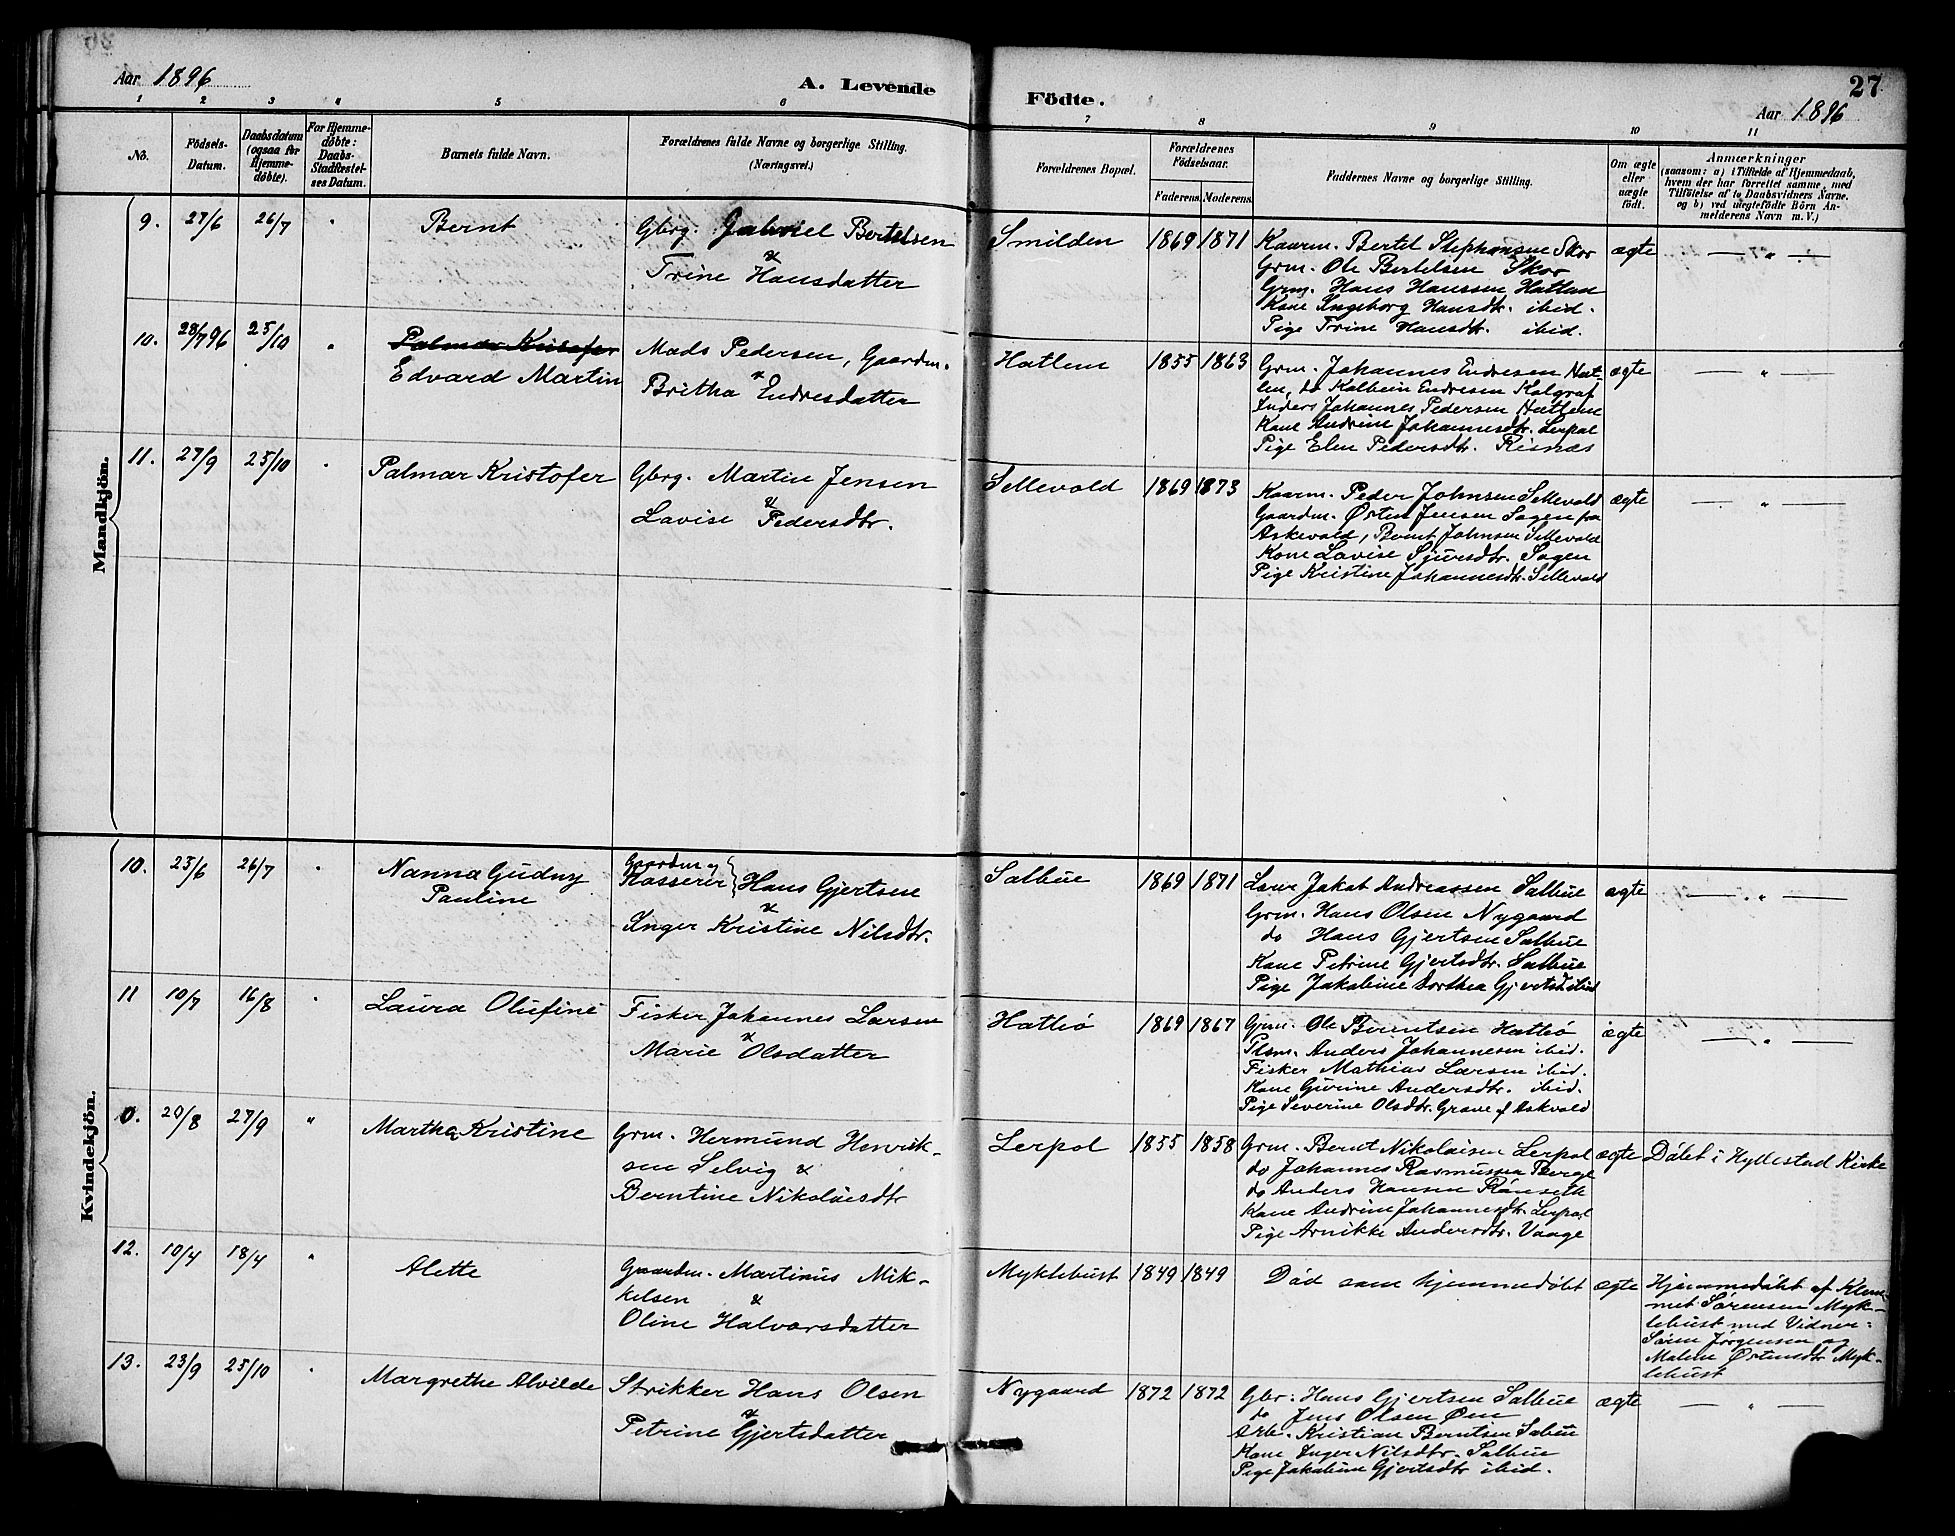 Aar 1896
A. Levende
Födte.
27
Aar 1896
1 2 3 4 5 6 7 8 9 10 11
No.
Födsels-
Datum.
Daabsdatum
(ogsaa for
Hjemme-
døbte).
For Hjemme-
døbte:
Daabs-
Stadfæstel-
ses Datum.
Barnets fulde Navn.
Forældrenes fulde Navne og borgerlige Stilling.
(Næringsvei.)
Forældrenes Bopæl.
Forældrenes
Födselsaar.
Faderens Moderens
Faddernes Navne og borgerlige Stilling.
Om ægte
eller
uægte
født.
Anmærkninger
(saasom: a) i Tilfælde af Hjemmedaab,
hvem der har forrettet samme, med
Tilføielse af to Daabsvidners Navne.
og b) ved uægtefødte Börn An-
melderens Navn m. V.)
Mandkjön.
9. 27/6 26/7 " Bernt
Gbrg. Gabriel Bertelsen
&
Trine Hansdatter
Smilden 1869 1871
Kaarm. Bertel Stephansen Skor
Grm. Ole Bertelsen Skor
Grm. Hans Hanssen Hatlem
Kone Ingeborg Hansdtr. ibid.
Pige Trine Hansdtr. ibid.
ægte — " —
10. 28/7 96 25/10 "
Palmar Kristofer
Edvard Martin
Mads Pedersen, Gaardm.
&
Britha Endresdatter
Hatlem 1855 1863
Grm. Johannes Endresen Hat-
lem, do Kolbein Endresen Kolgraf
Anders Johannes Pedersen Hatlem
Kone Andrine Johannesdtr. Lerpol
Pige Elen Pedersdtr. Risnæs
ægte — " —
11. 27/9 25/10 " Palmar Kristofer
Gbrg. Martin Jensen
&
Lavise Pedersdtr.
Sellevold 1869 1873
Kaarm. Peder Johnsen Sellevold
Gaardm. Østen Jensen Sagen fra
Askevold, Bernt Johnsen Sellevold
Kone Lavise Sjursdtr. Sagen
Pige Kristine Johannesdtr. Sellevold
ægte — " —
Kvindekjön.
10. 25/6 26/7 "
Nanna Gudny
Pauline
Gaardm og
Kasserer } Hans Gjertsen
&
Inger Kristine Nilsdtr.
Salbue 1869 1871
Jakob Andreassen Salbue
Grm. Hans Olsen Nygaard
do Hans Gjertsen Salbue
Kone Petrine Gjertsdtr. Salbue
Pige Jakobine Dorthea Gjertsdtr ibid
ægte — " —
11 10/7 16/8 " Laura Olufine
Fisker Johannes Larsen
&
Marie Olsdatter
Hatlø 1869 1867
Grm. Ole Berntsen Hatlø
Plsm. Anders Johannesen ibid.
Fisker Mathias Larsen ibid.
Kone Gurine Andersdtr. ibid.
Pige Severine Olsdtr. Grave af Askvold
ægte — " —
0. 20/8 27/9 " Martha Kristine
Grm. Hermund Henrik-
sen Selvig &
Berntine Nikolaisdtr
Lerpol 1855 1858
Grm. Bernt Nikolaisen Lerpol
do Johannes Rasmussen Berge
do Anders Hansen Rønseth
Kone Andrine Johannesdtr. Lerpol
Pige Arnikke Andersdtr. Vaage
ægte Døbt i Hyllestad Kirke
12. 10/4 18/4 " Alette
Gaardm. Martinus Mik-
kelsen &
Oline Halvorsdatter
Myklebust 1849 1849
Død som hjemmedøbt
ægte
Hjemmedøbt af Klem-
met Sørensen Myk-
lebust med Vidner:
Søren Jørgensen og
Malene Østensdtr Myk-
lebust
13. 23/9 25/10 " Margrethe Alvilde
Strikker Hans Olsen
&
Petrine Gjertsdatter
Nygaard 1872 1872
Gbr. Hans Gjertsen Salbue
do Jens Olsen Øen
Arb. Kristian Berntsen Salbue
Kone Inger Nilsdtr. Salbue
Pige Jakobine Gjertsdtr ibid.
ægte — " —